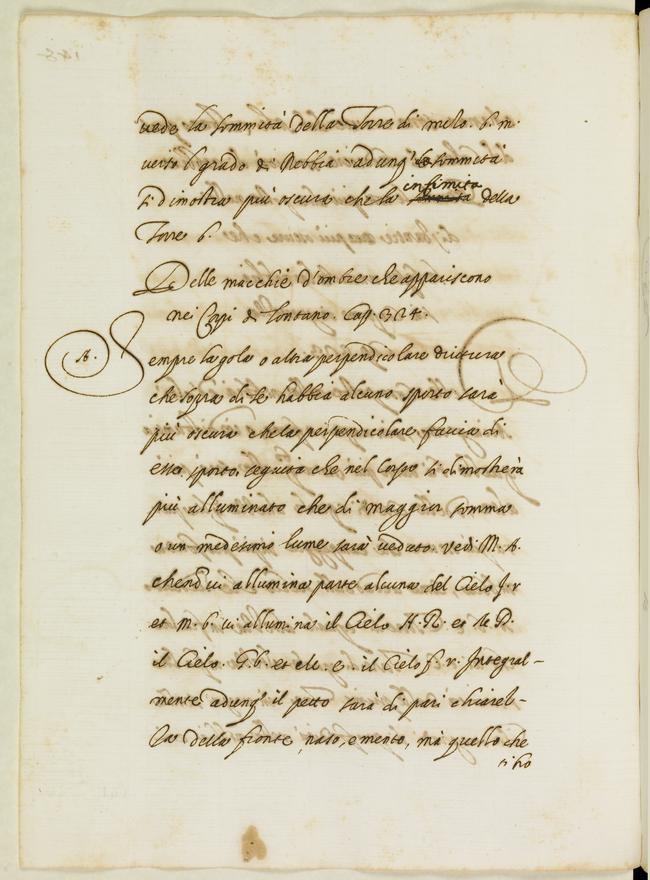 vede la sommità della Torre di melo. b. m.
verso l grado di Nebbia adunq̃ la sommità
si dimostra più oscura che la infimità della
Torre b.
Delle macchie d'ombre che appariscono
nei Corpi di lontano. Cap. 324.
A.
Sempre la gola o altra perpendicolare drittura
che sopra di se habbia alcuno sporto sarà
più oscura che la perpendicolare faccia di
esso sporto, seguita che nel Corpo si dimosterà
più alluminato che di maggior somma
o un medesimo lume sarà veduto. vedi M. A.
che no vi allumina parte alcuna del Cielo f. r
et M. b. vi allumina il Cielo H. R. et
il Cielo. G. b. et e. il Cielo f. r. Integral-
mente adunq̃ il petto sarà di pari chiarel-
la della fronte, naso, e mento, mà quello che
ti ho